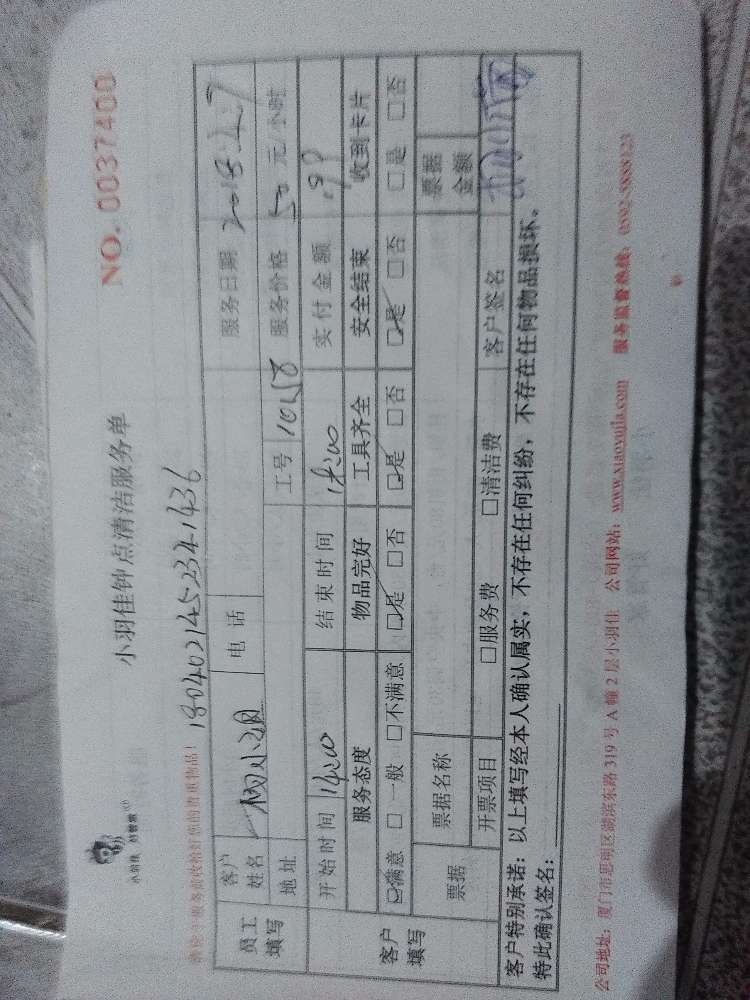 小羽佳 好管家
小羽佳钟点清洁服务单
NO. 0037400
请您于服务前收拾好您的贵重物品!
1804021452341436
员工填写 客户姓名 杨小姐 电话 服务日期 2018.4.7
地址 工号 10158 服务价格 50 元/小时
客户填写 开始时间 14:00 结束时间 实付金额
服务态度 物品完好 工具齐全 安全结束 收到卡片
☑满意 □一般 □不满意 ☑是 □否 ☑是 □否 ☑是 □否 □是 □否
票据 票据名称 票据金额
开票项目 □服务费 □清洁费 客户签名
客户特别承诺:以上填写经本人确认属实,不存在任何纠纷,不存在任何物品损坏。
特此确认签名:
公司地址:厦门市思明区湖滨东路 319 号 A 幢 2 层小羽佳 公司网站:www.xiaoyujia.com 服务监督热线:0592-5888123